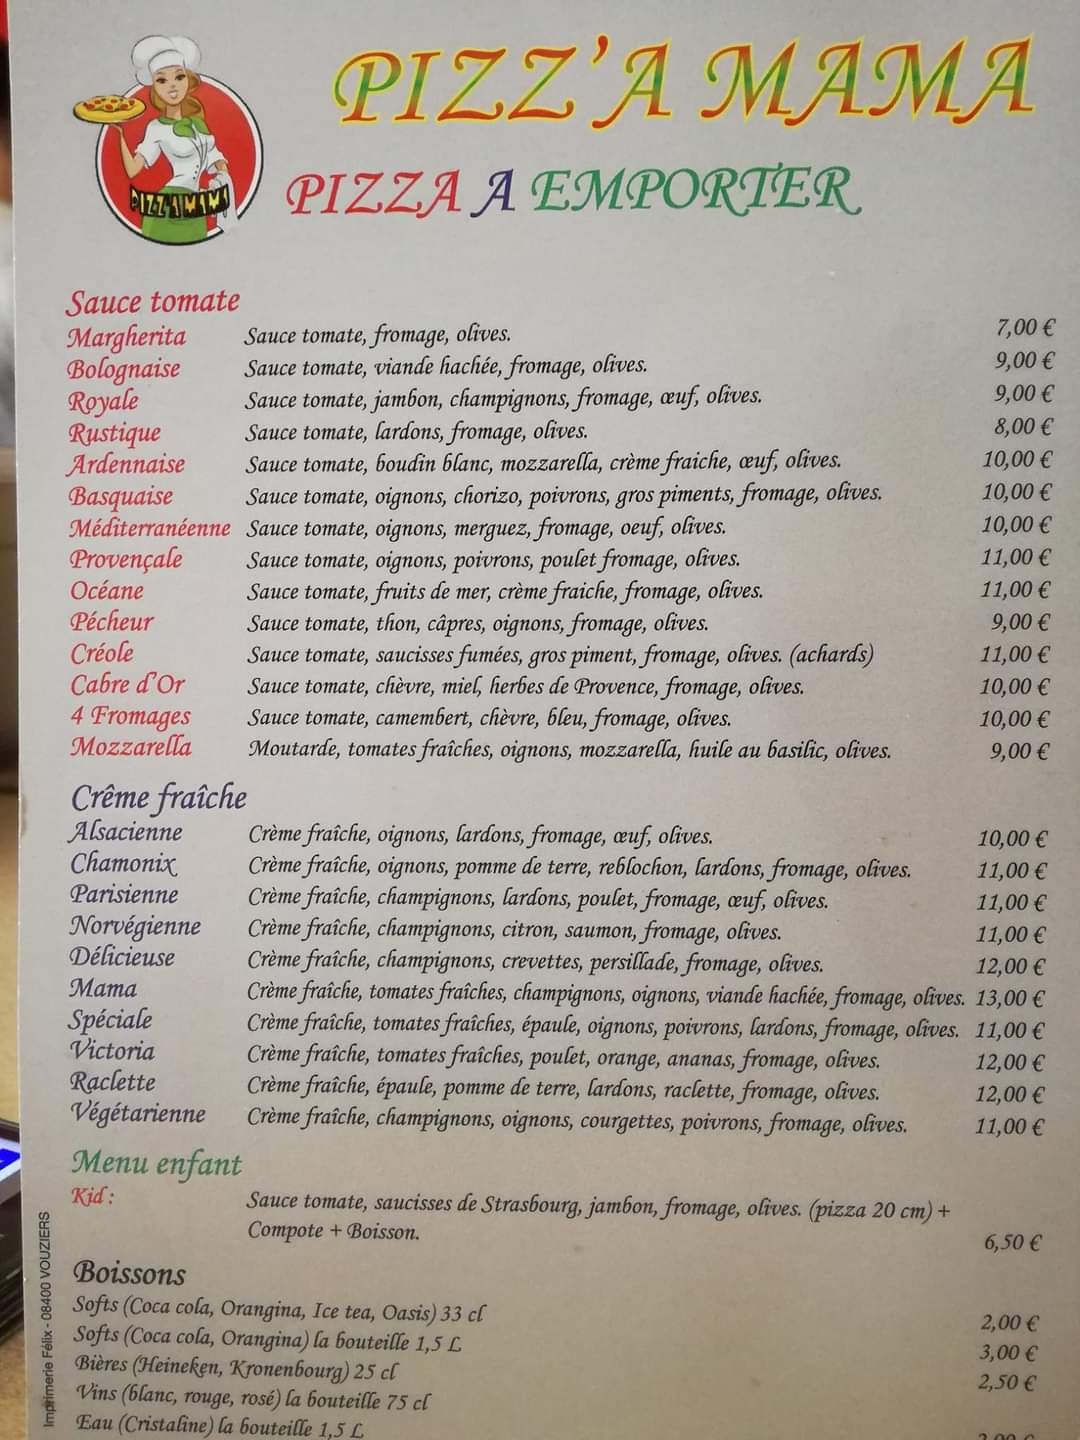 PIZZ'A MAMA
PIZZA A EMPORTER
PIZZ'A MAMA
Sauce tomate
Margherita Sauce tomate, fromage, olives. 7,00 €
Bolognaise Sauce tomate, viande hachée, fromage, olives. 9,00 €
Royale Sauce tomate, jambon, champignons, fromage, œuf, olives. 9,00 €
Rustique Sauce tomate, lardons, fromage, olives. 8,00 €
Ardennaise Sauce tomate, boudin blanc, mozzarella, crème fraiche, œuf, olives. 10,00 €
Basquaise Sauce tomate, oignons, chorizo, poivrons, gros piments, fromage, olives. 10,00 €
Méditerranéenne Sauce tomate, oignons, merguez, fromage, oeuf, olives. 10,00 €
Provençale Sauce tomate, oignons, poivrons, poulet fromage, olives. 11,00 €
Océane Sauce tomate, fruits de mer, crème fraiche, fromage, olives. 11,00 €
Pécheur Sauce tomate, thon, câpres, oignons, fromage, olives. 9,00 €
Créole Sauce tomate, saucisses fumées, gros piment, fromage, olives. (achards) 11,00 €
Cabre d'Or Sauce tomate, chèvre, miel, herbes de Provence, fromage, olives. 10,00 €
4 Fromages Sauce tomate, camembert, chèvre, bleu, fromage, olives. 10,00 €
Mozzarella Moutarde, tomates fraîches, oignons, mozzarella, huile au basilic, olives. 9,00 €
Crême fraîche
Alsacienne Crème fraîche, oignons, lardons, fromage, œuf, olives. 10,00 €
Chamonix Crème fraîche, oignons, pomme de terre, reblochon, lardons, fromage, olives. 11,00 €
Parisienne Crème fraîche, champignons, lardons, poulet, fromage, œuf, olives. 11,00 €
Norvégienne Crème fraîche, champignons, citron, saumon, fromage, olives. 11,00 €
Délicieuse Crème fraîche, champignons, crevettes, persillade, fromage, olives. 12,00 €
Mama Crème fraîche, tomates fraîches, champignons, oignons, viande hachée, fromage, olives. 13,00 €
Spéciale Crème fraîche, tomates fraîches, épaule, oignons, poivrons, lardons, fromage, olives. 11,00 €
Victoria Crème fraîche, tomates fraîches, poulet, orange, ananas, fromage, olives. 12,00 €
Raclette Crème fraîche, épaule, pomme de terre, lardons, raclette, fromage, olives. 12,00 €
Végétarienne Crème fraîche, champignons, oignons, courgettes, poivrons, fromage, olives. 11,00 €
Menu enfant
Kid : Sauce tomate, saucisses de Strasbourg, jambon, fromage, olives. (pizza 20 cm) +
Compote + Boisson. 6,50 €
Boissons
Softs (Coca cola, Orangina, Ice tea, Oasis) 33 cl 2,00 €
Softs (Coca cola, Orangina) la bouteille 1,5 L 3,00 €
Bières (Heineken, Kronenbourg) 25 cl 2,50 €
Vins (blanc, rouge, rosé) la bouteille 75 cl
Eau (Cristaline) la bouteille 1,5 L
Imprimerie Félix - 08400 VOUZIERS